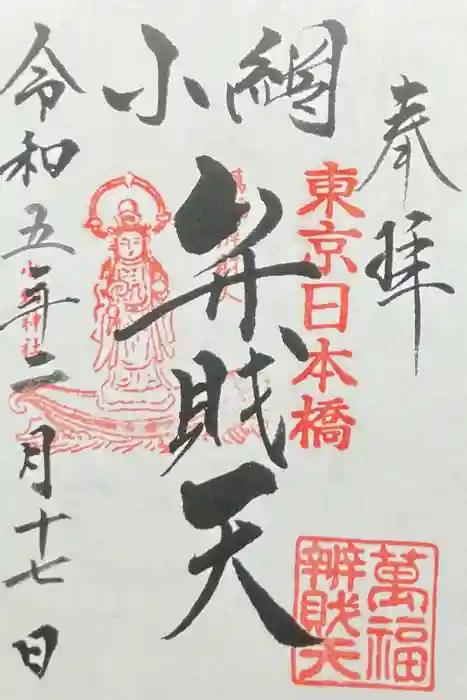 奉拝
東京日本橋
小網
弁財天
萬福
辨財天
令和五年二月十七日
小網神社